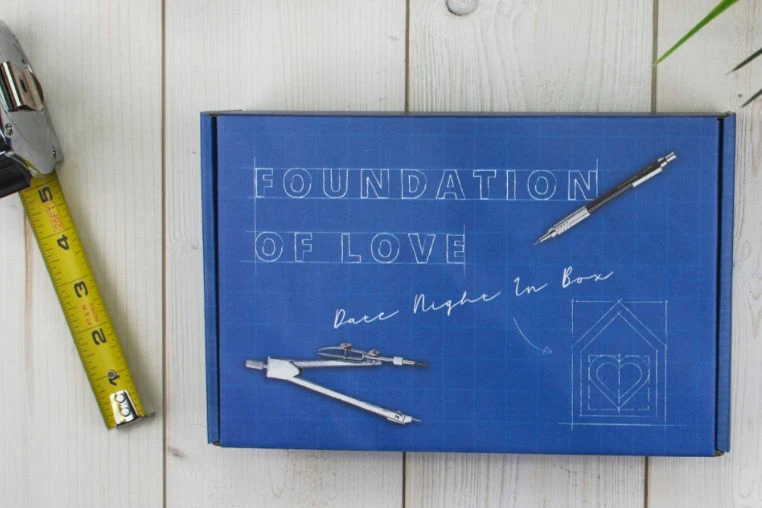 FOUNDATION
OF LOVE
Date Night In Box
5
4
3
2
1